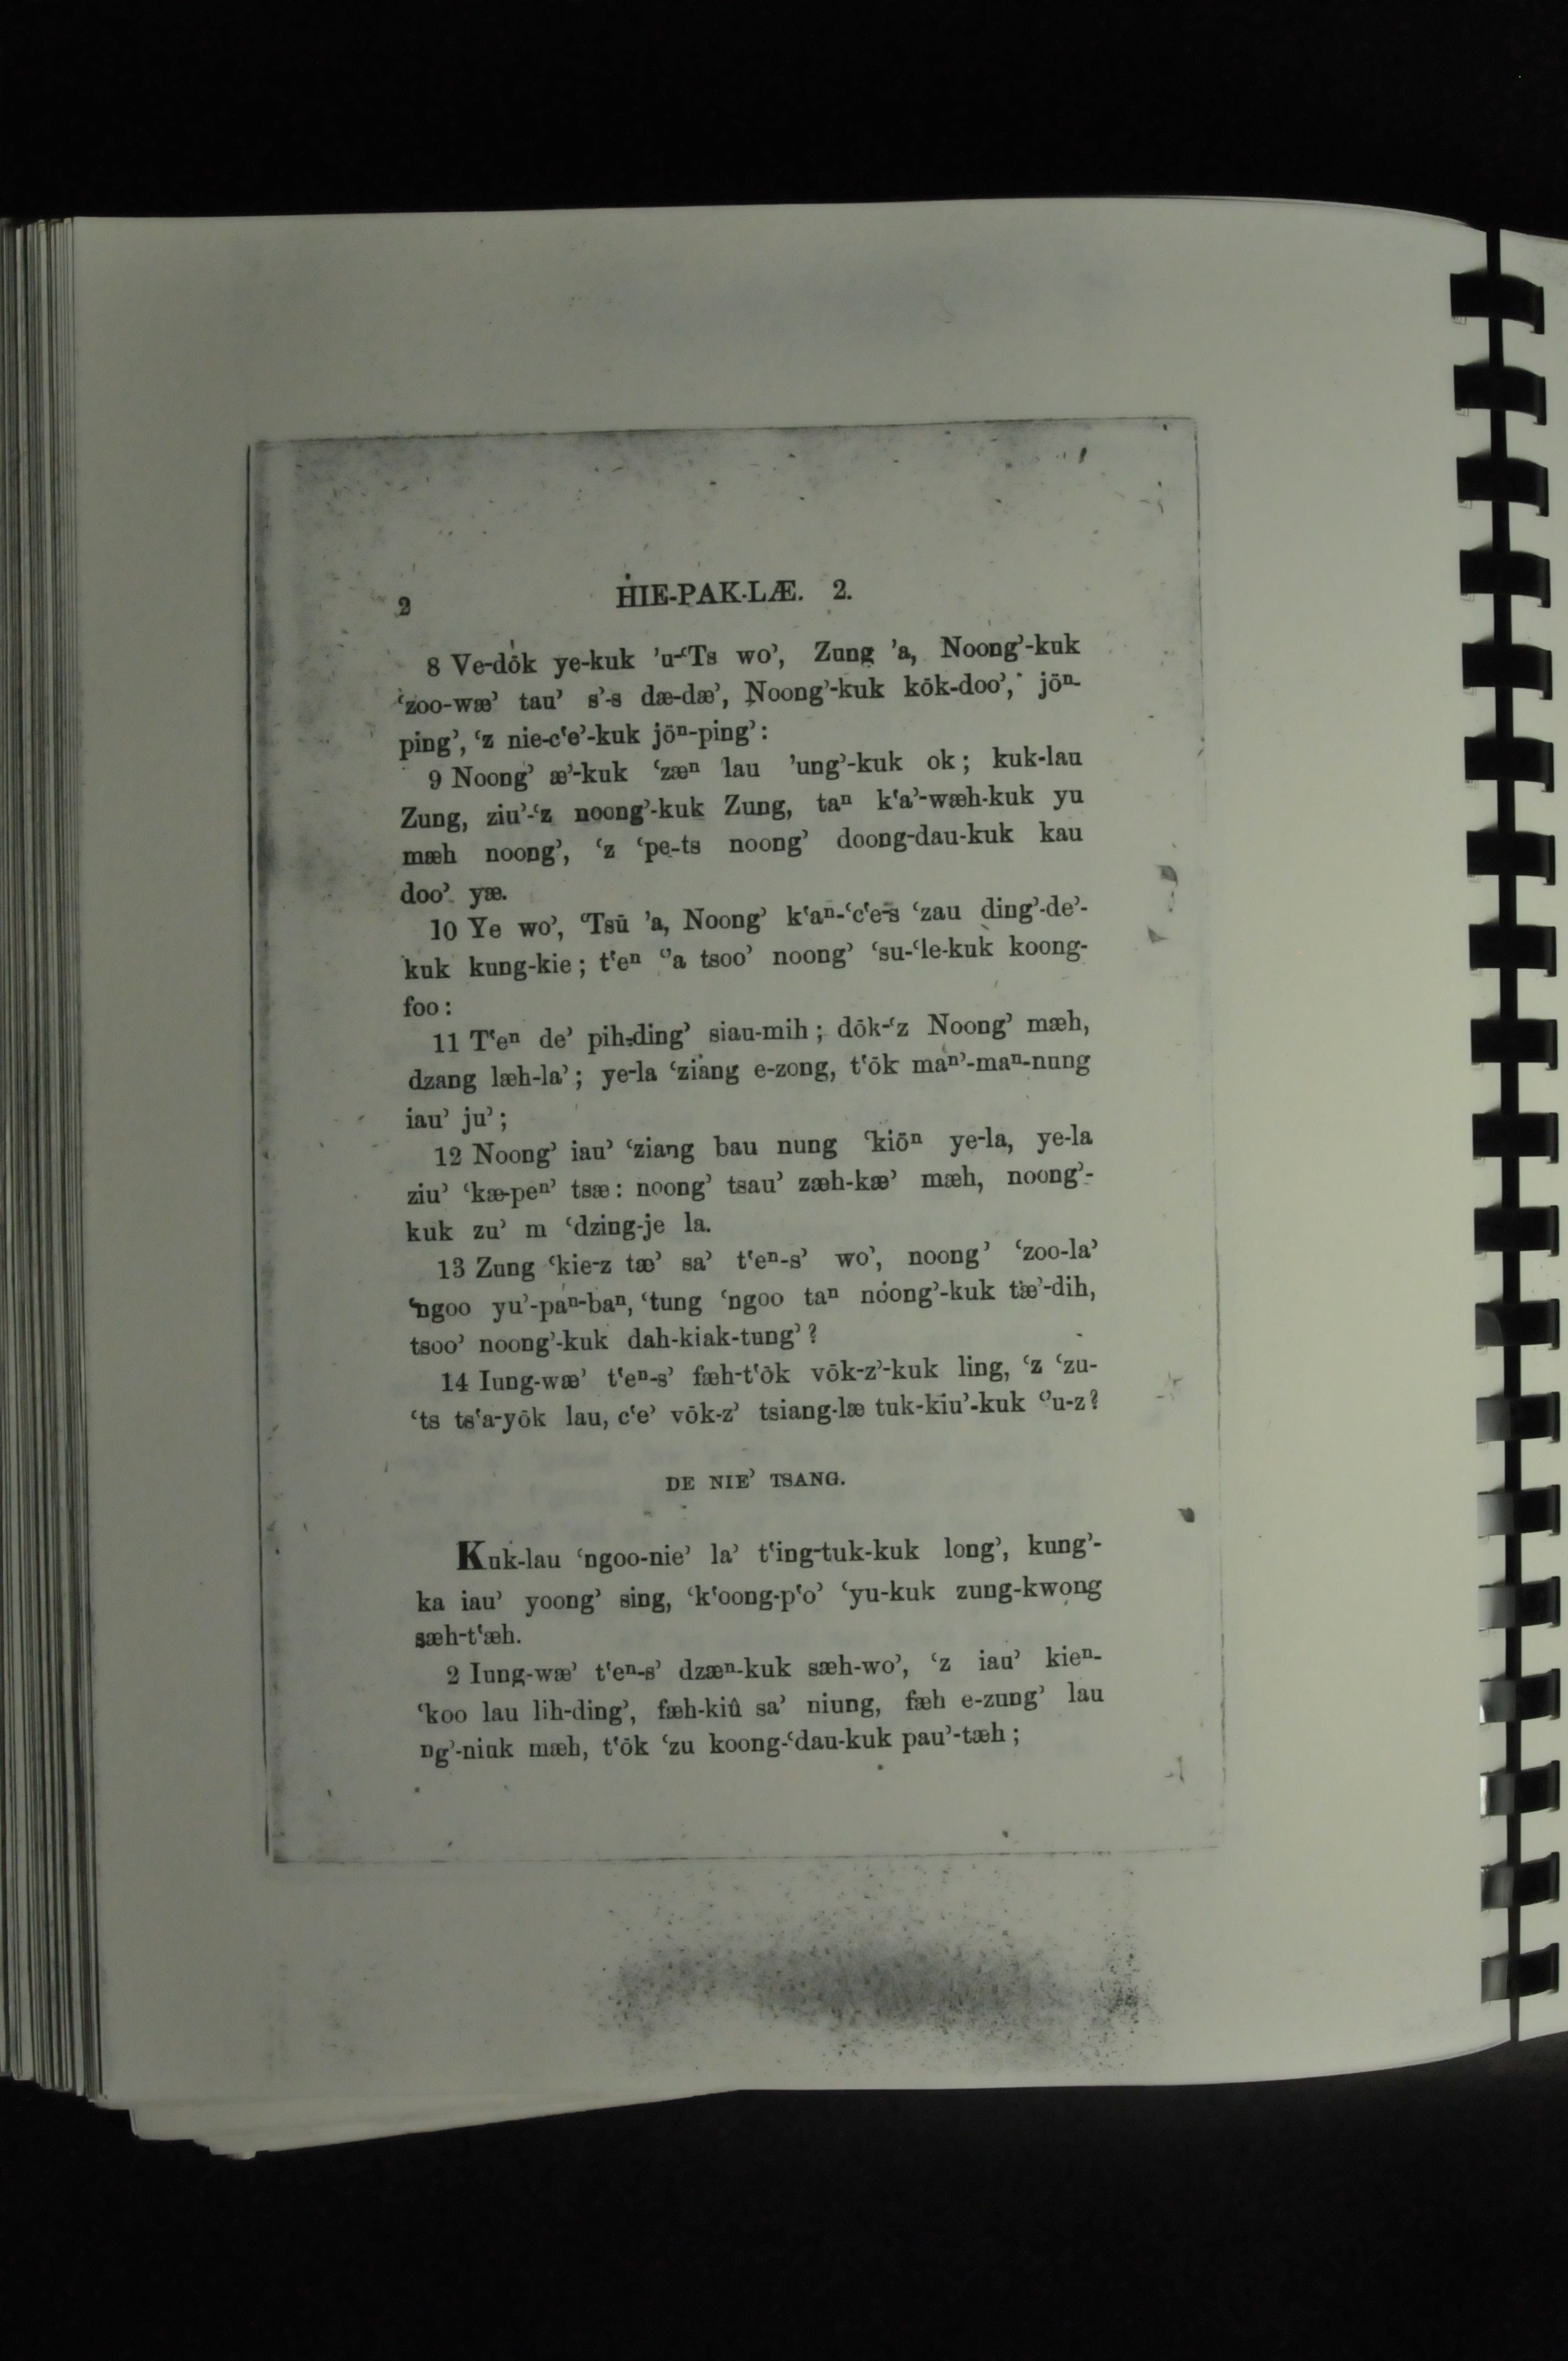 2 HIE-PAK-LÆ. 2.
8 Ve-dōk ye-kuk ’u-‘Ts wo’, Zung ’a, Noong’-kuk
‘zoo-wæ’ tau’ s’-s dæ-dæ’, Noong’-kuk kōk-doo’, jöⁿ-
ping’, ‘z nie-c‘e’-kuk jöⁿ-ping’:
9 Noong’ æ’-kuk ‘zæⁿ lau ’ung’-kuk ok; kuk-lau
Zung, ziu’-‘z noong’-kuk Zung, taⁿ k‘a’-wæh-kuk yu
mæh noong’, ‘z ‘pe-ts noong’ doong-dau-kuk kau
doo’ yæ.
10 Ye wo’, ‘Tsū ’a, Noong’ k‘aⁿ-‘c‘e-s ‘zau ding’-de’-
kuk kung-kie; t‘eⁿ ‘’a tsoo’ noong’ ‘su-‘le-kuk koong-
foo:
11 T‘eⁿ de’ pih-ding’ siau-mih; dōk-‘z Noong’ mæh,
dzang læh-la’; ye-la ‘ziang e-zong, t‘ōk maⁿ’-maⁿ-nung
iau’ ju’;
12 Noong’ iau’ ‘ziang bau nung ‘kiöⁿ ye-la, ye-la
ziu’ ‘kæ-peⁿ’ tsæ: noong’ tsau’ zæh-kæ’ mæh, noong’-
kuk zu’ m ‘dzing-je la.
13 Zung ‘kie-z tæ’ sa’ t‘eⁿ-s’ wo’, noong’ ‘zoo-la’
‘ngoo yu’-paⁿ-baⁿ, ‘tung ‘ngoo taⁿ noong’-kuk tæ’-dih,
tsoo’ noong’-kuk dah-kiak-tung’?
14 Iung-wæ’ t‘eⁿ-s’ fæh-t‘ōk vōk-z’-kuk ling, ‘z ‘zu-
‘ts ts‘a-yōk lau, c‘e’ vōk-z’ tsiang-læ tuk-kiu’-kuk ‘’u-z?
DE NIE’ TSANG.
Kuk-lau ‘ngoo-nie’ la’ t‘ing-tuk-kuk long’, kung’-
ka iau’ yoong’ sing, ‘k‘oong-p‘o’ ‘yu-kuk zung-kwong
sæh-t‘æh.
2 Iung-wæ’ t‘eⁿ-s’ dzæⁿ-kuk sæh-wo’, ‘z iau’ kieⁿ-
‘koo lau lih-ding’, fæh-kiû sa’ niung, fæh e-zung’ lau
ng’-niuk mæh, t‘ōk ‘zu koong-‘dau-kuk pau’-tæh;